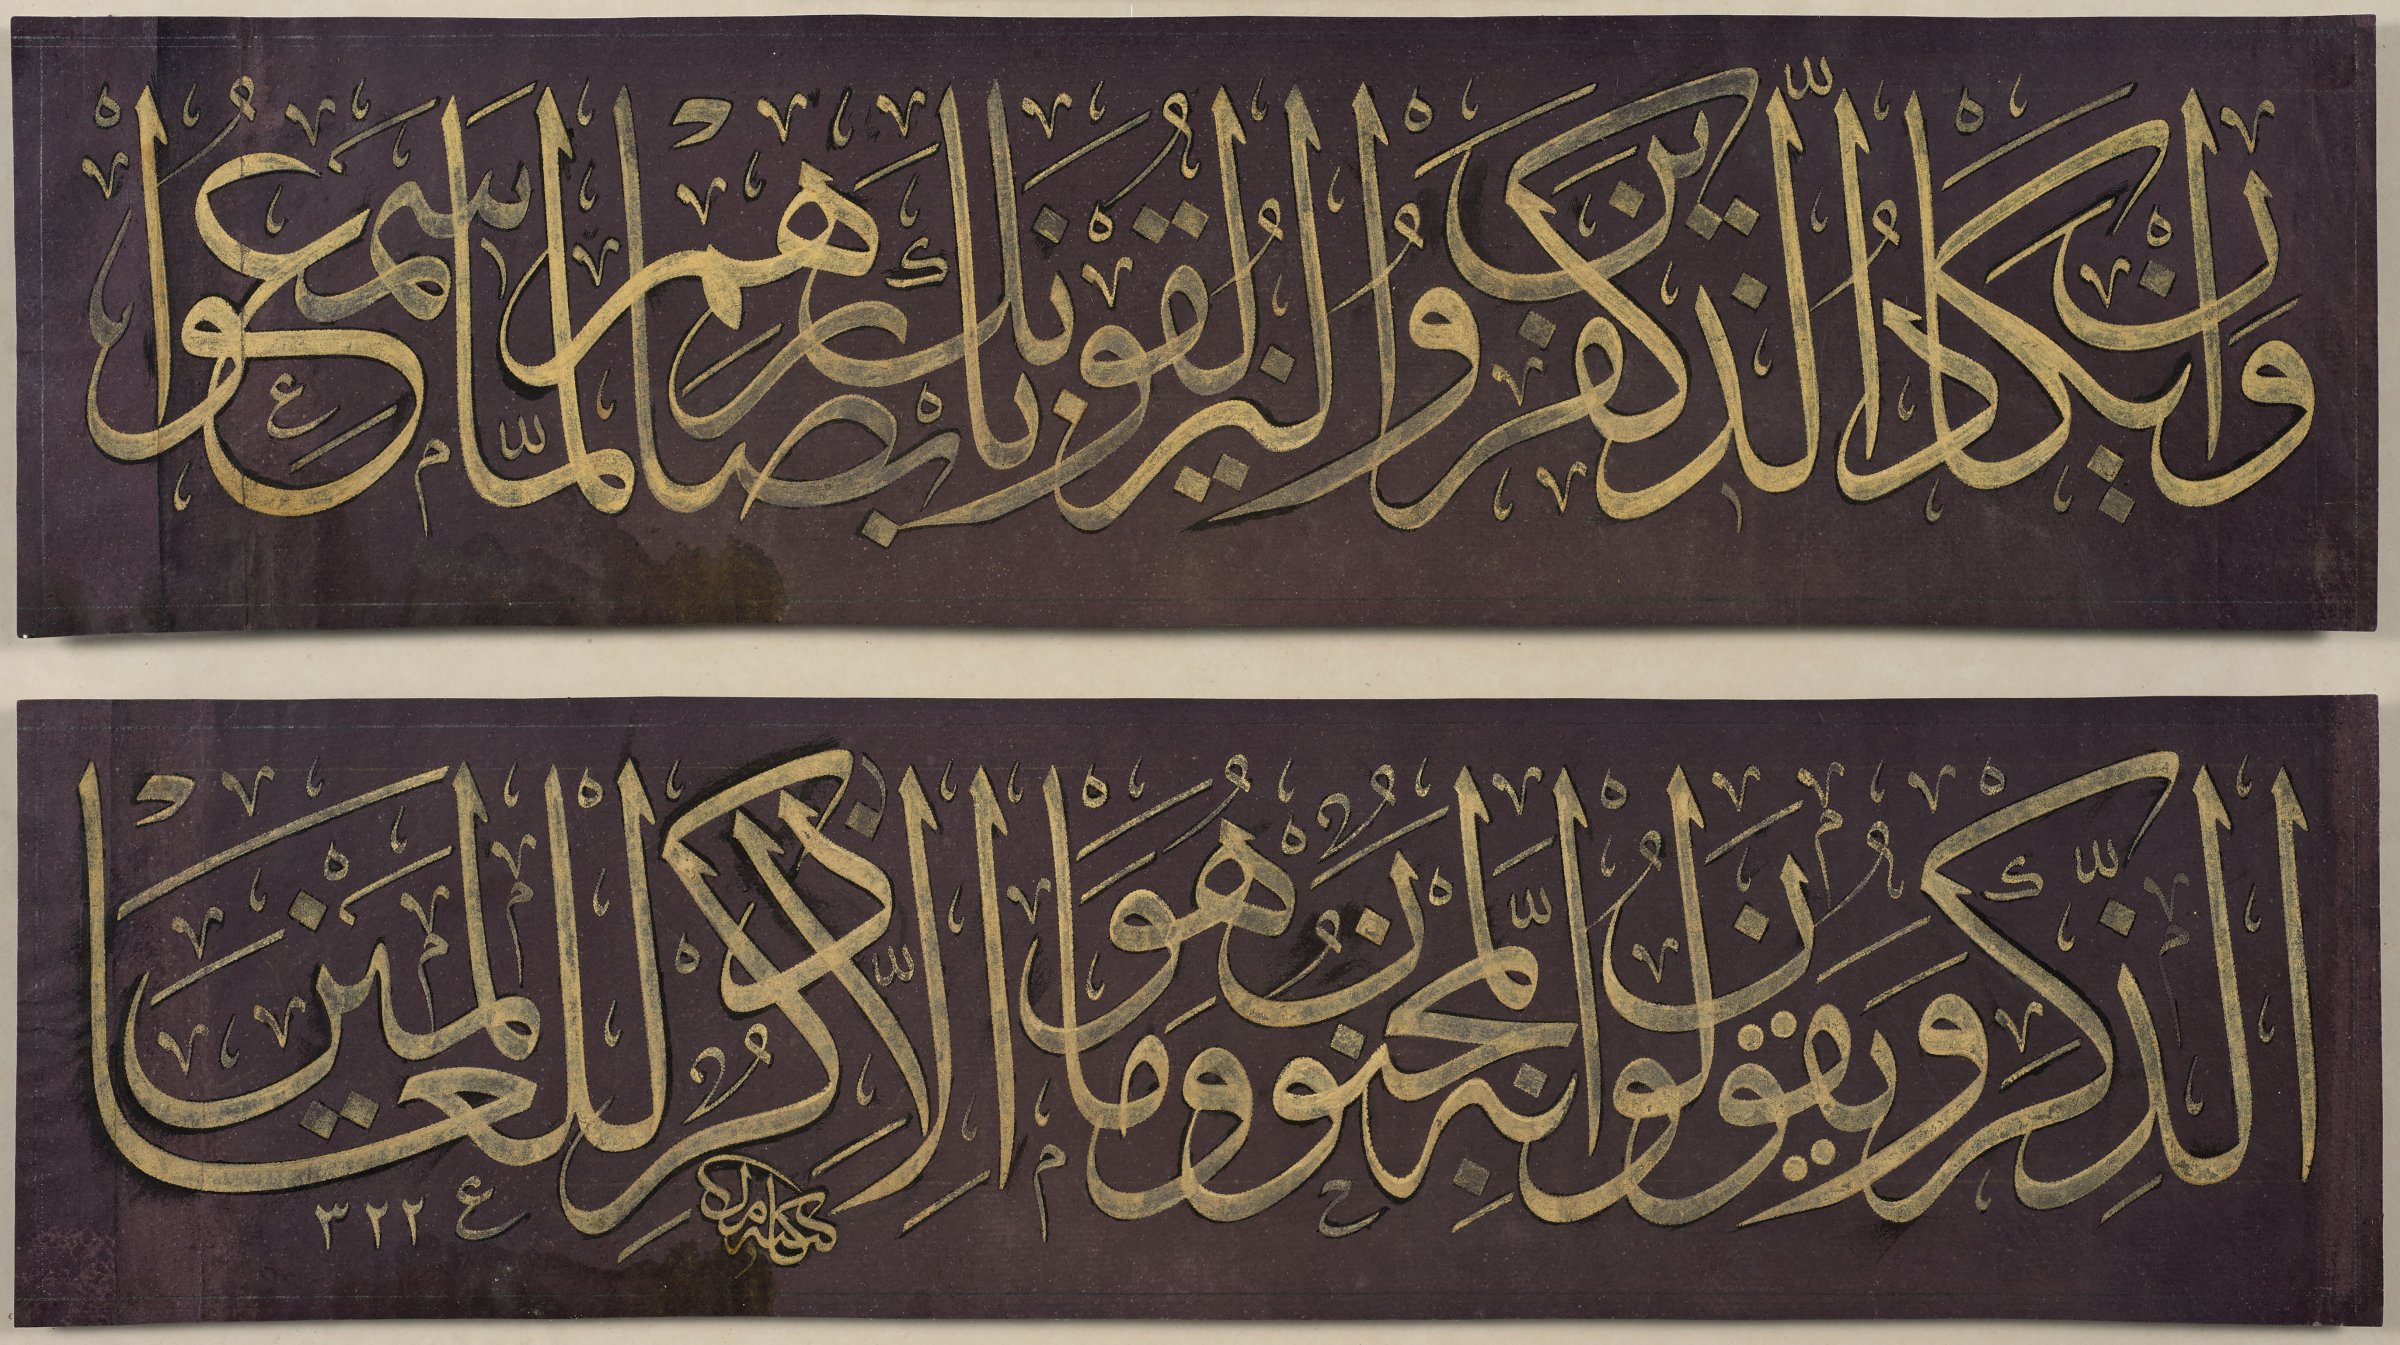 وَإِنْ يَكَادُ الَّذِينَ كَفَرُوا لَيُزْلِقُونَكَ بِأَبْصَارِهِمْ لَمَّا سَمِعُوا
الذِّكْرَ وَيَقُولُونَ إِنَّهُ لَمَجْنُونٌ وَمَا هُوَ إِلَّا ذِكْرٌ لِلْعَالَمِينَ
٣٢٢